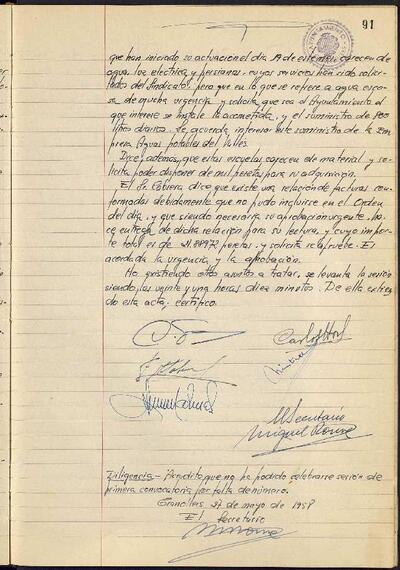 91
que han iniciado su actuación el día 19 de este mes, carecen de
agua, luz eléctrica y persianas, cuyos servicios han sido solici-
tados del Sindicato, pero que en lo que se refiere a agua es co-
sa de mucha urgencia y solicita que sea el Ayuntamiento el
que interese se instale la acometida, y el suministro de 800
litros diarios. Se acuerda interesar este suministro de la Em-
presa Aguas potables del Vallés.
Dice, además, que estas escuelas carecen de material y so-
licita poder disponer de mil pesetas para su adquisición.
El Sr. Cabrera dice que existe una relación de facturas con-
formadas debidamente que no pudo incluirse en el Orden
del día, y que siendo necesaria su aprobación urgente, ha-
ce entrega de dicha relación para su lectura, y cuyo impor-
te total es de pesetas, y solicita se apruebe. Es
acordada la urgencia y la aprobación.
No existiendo otros asuntos a tratar, se levanta la sesión
siendo las veinte y una horas diez minutos. De ella extien-
do esta acta, certifico.
El Secretario
Diligencia.- Acredito que no ha podido celebrarse sesión de
primera convocatoria por falta de número.
Granollers 27 de mayo de 1958
El Secretario